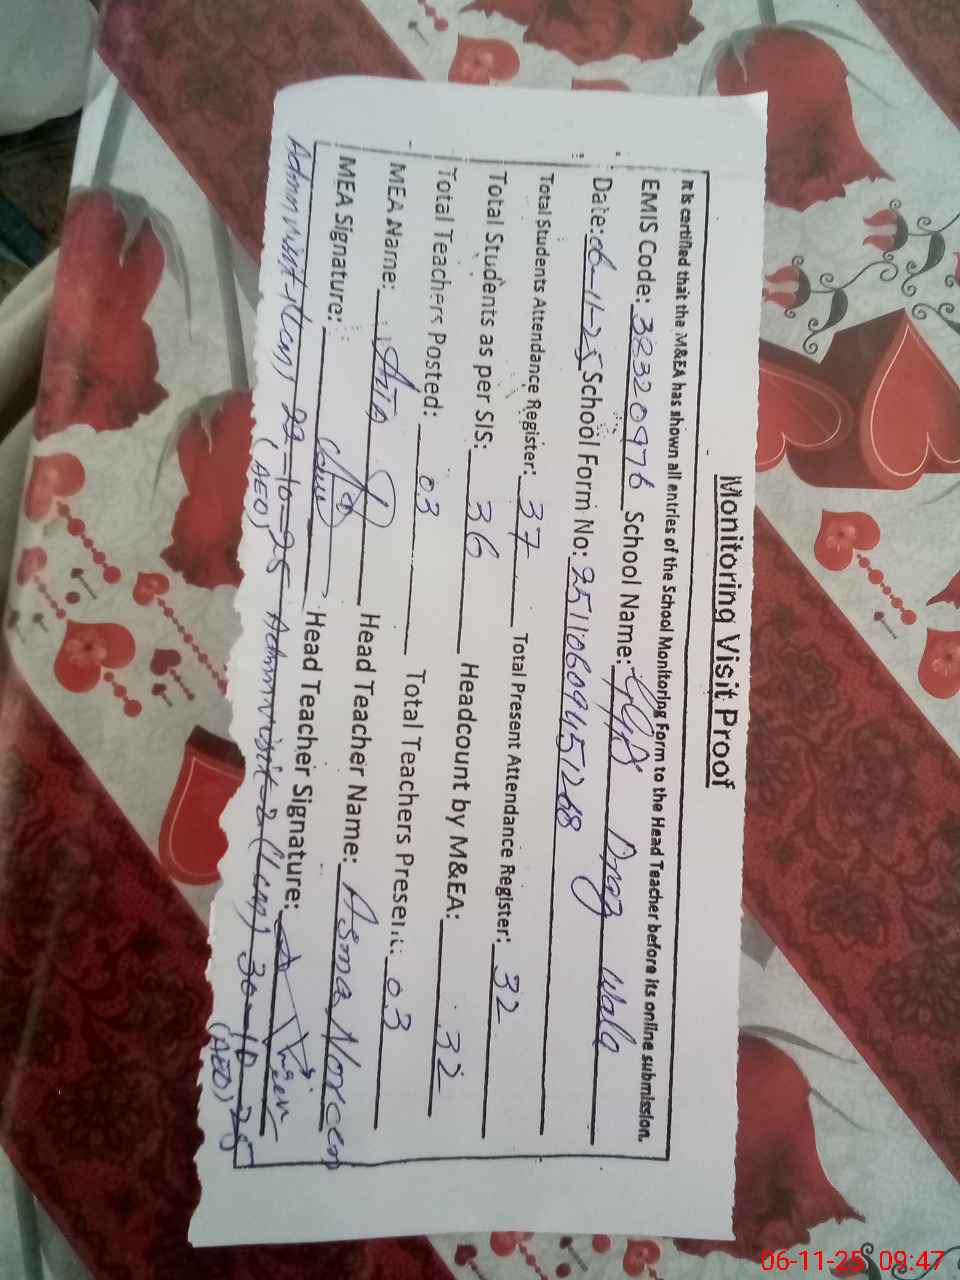 Monitoring Visit Proof
It is certified that the M&EA has shown all entries of the School Monitoring Form to the Head Teacher before its online submission.
EMIS Code: 38320976 School Name: GGPS Wala
Date: 06-11-25 School Form No: 251106094451268
Total Students Attendance Register: 37 Total Present Attendance Register: 32
Total Students as per SIS: 36 Headcount by M&EA: 32
Total Teachers Posted: 03 Total Teachers Present: 03
MEA Name: Head Teacher Name: Asma Noreen
MEA Signature: Head Teacher Signature:
Admn visit-1 29-10-25 Admn visit-2 30-10-25
(AEO) (AEO)
06-11-25 09:47